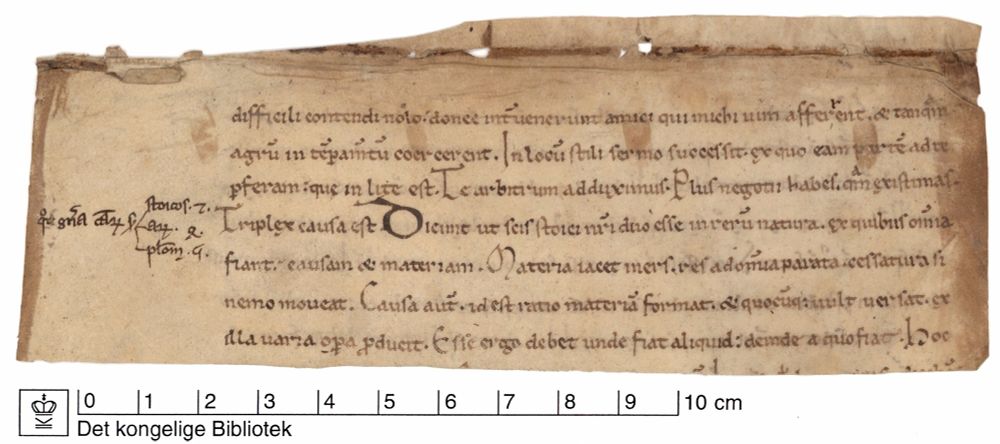 difficili contendi nōlo. donec int̄uenerunt amici qui michi uim afferrent. & tanq̄m
agrū in tēpam̄tū coercerent. In locū stili sermo successit. ex quo eam partē ad te
p̱feram: que in lite est. Te arbitrum adduximus. Plus negotii habes. q̄m existimas.
Triplex causa est. Dicunt ut scis stoici nr̄i duo esse in rerū natura. ex quibus om̄ia
fiant. causam & materiam. Materia iacet iners. res ad om̄ia parata. cessatura si
nemo moueat. Causa aut̄. id est ratio materiā format. & quocūq; uult uersat. ex
illa uaria op̱a p̱ducit. Esse ergo debet unde fiat aliquid: deinde a quo fiat. Hoc
stoicos. 2.
ar̄. 4.
plōm. 5.
0 1 2 3 4 5 6 7 8 9 10 cm
Det kongelige Bibliotek